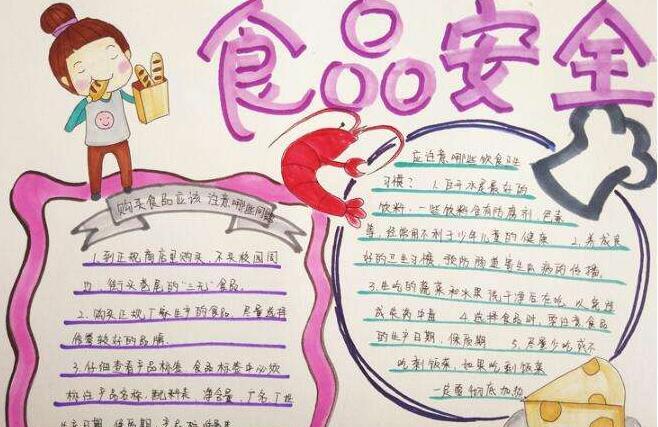 食品安全
购买食品应该注意哪些问题
1.到正规商店里购买,不买校园周
边、街头巷尾的“三无”食品。
2.购买正规厂家生产的食品,尽量选择
信誉度较好的品牌.
3.仔细查看产品标签.食品标签中必须
标注:产品名称、配料表、净含量、厂名、厂址
生产日期、保质期、产品标准
应注意哪些饮食卫生
习惯? 1.白开水是最好的
饮料,一些饮料含有防腐剂、色素
等,经常饮用不利于少年儿童的健康 2.养成良
好的卫生习惯 预防肠道寄生虫病的传播.
3.生吃的蔬菜和水果洗干净后在吃,以免造
成农药中毒 4.选择食品时,要注意食品
的生产日期、保质期 5.尽量少吃或不
吃剩饭菜,如果吃剩饭菜
一定要彻底加热